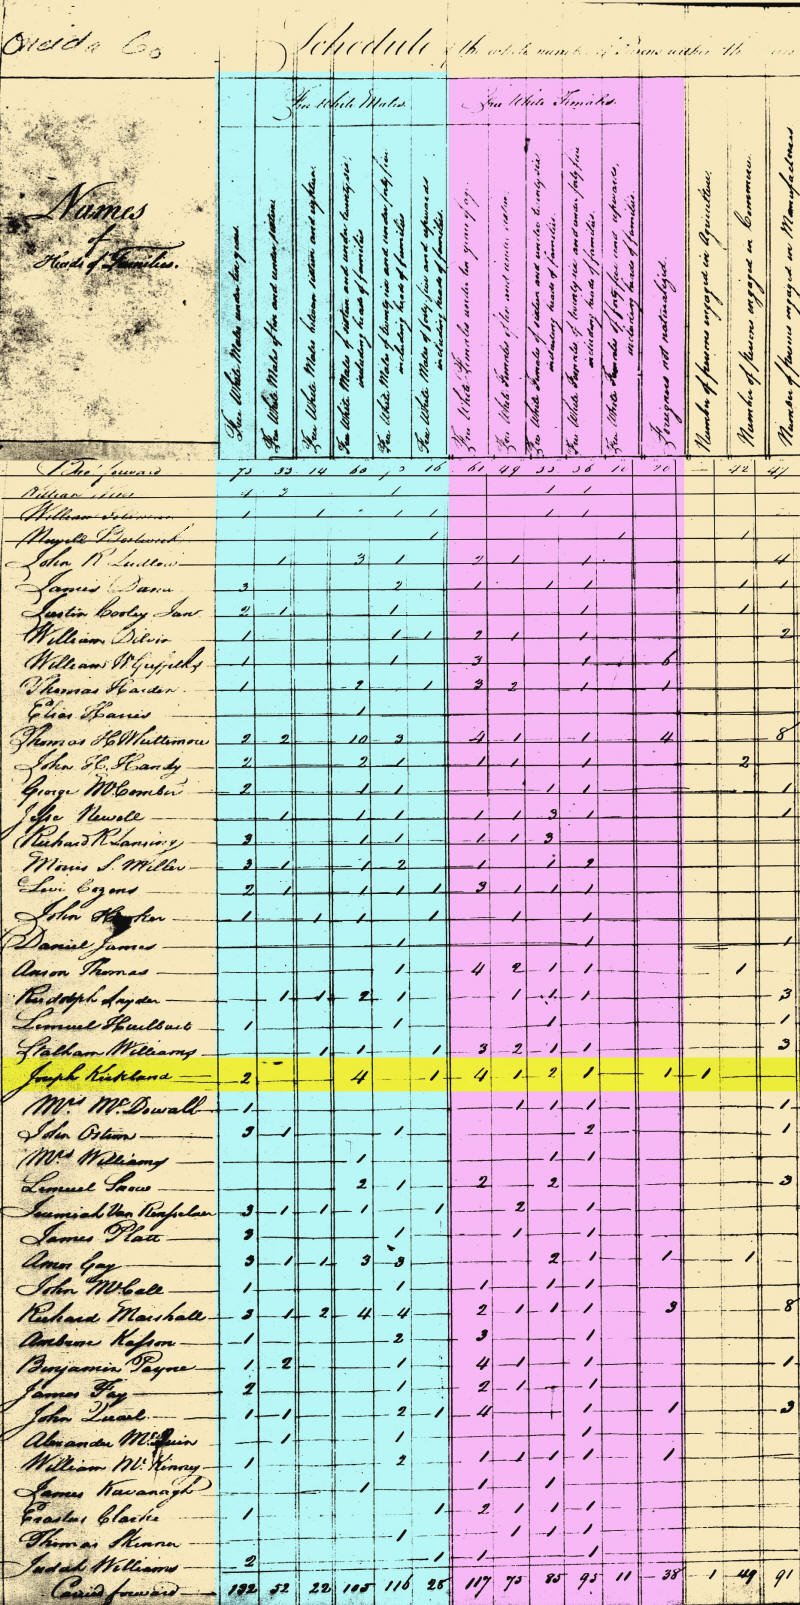 Oneida Co
Schedule of the whole number of Persons within the
Free White Males Free White Females
Names
of
Heads of Families.
Free White Males under ten years
Free White Males of ten and under sixteen
Free White Males between sixteen and eighteen
Free White Males of sixteen and under twenty six including heads of families
Free White Males of twenty six and under forty five including heads of families
Free White Males of forty five and upwards including heads of families
Free White Females under ten years of age
Free White Females of ten and under sixteen
Free White Females of sixteen and under twenty six including heads of families
Free White Females of twenty six and under forty five including heads of families
Free White Females of forty five and upwards, including heads of families
Foreigners not naturalized
Number of persons engaged in Agriculture
Number of persons engaged in Commerce
Number of persons engaged in Manufactures
Bro't forward 73 33 14 60 16 61 49 33 36 10 20 42 47
William 4 3 1 1 1
William 1 1 1 1 1 1
1 1 1
John R Ludlow 1 3 1 2 1 1 4
James Dana 3 2 1 1 1 1 1
Justin Cooley Jun 2 1 1 1 1
William 1 1 1 2 1 1 2
William W Griffiths 1 1 3 1 6
Thomas Harden 1 2 1 3 2 1 1
Elias Harris 1
Thomas H Whittimore 2 2 10 3 4 1 1 4 8
John H. Handy 2 2 1 1 1 1 2
George McComber 2 1 1 1 1 1
Jesse Newell 1 1 1 1 1 3 1 1
Richard R Lansing 3 1 1 1 1 3
Morris S. Miller 3 1 1 2 1 1 2
Levi Cozens 2 1 1 1 1 3 1 1 1
John Hooker 1 1 1 1 1 1
Daniel James 1 1 1
Anson Thomas 1 4 2 1 1 1
Rudolph Snyder 1 1 2 1 1 1 1 3
Lemuel Hurlburt 1 1 1 1
Stalham Williams 1 1 1 3 2 1 1 3
Joseph Kirkland 2 4 1 4 1 2 1 1 1
Mrs McDowall 1 1 1 1 1
John Ostrom 3 1 1 2 1
Mrs Williams 1 1 1
Lemuel Snow 2 1 2 2 3
Jeremiah Van Rensselaer 3 1 1 1 1 2 1
James Platt 3 1 1 1
Amos Gay 3 1 1 3 3 2 1 1 1
John McCall 1 1 1 1 1
Richard Marshall 3 1 2 4 4 2 1 1 1 3 8
Ambrose Kasson 1 2 3 1
Benjamin Payne 1 2 1 4 1 1 1
James Fay 2 1 2 1 1
John Queal 1 1 2 1 4 1 1 3
Alexander McQuin 1 1 1
William McKinney 1 2 1 1 1 1 1
James Kavanagh 1 1 1
Erastus Clarke 1 1 2 1 1 1
Thomas Skinner 1 1 1 1
Judah Williams 2 1 1 1
Carried forward 132 52 22 105 116 26 117 75 85 95 11 38 1 49 91